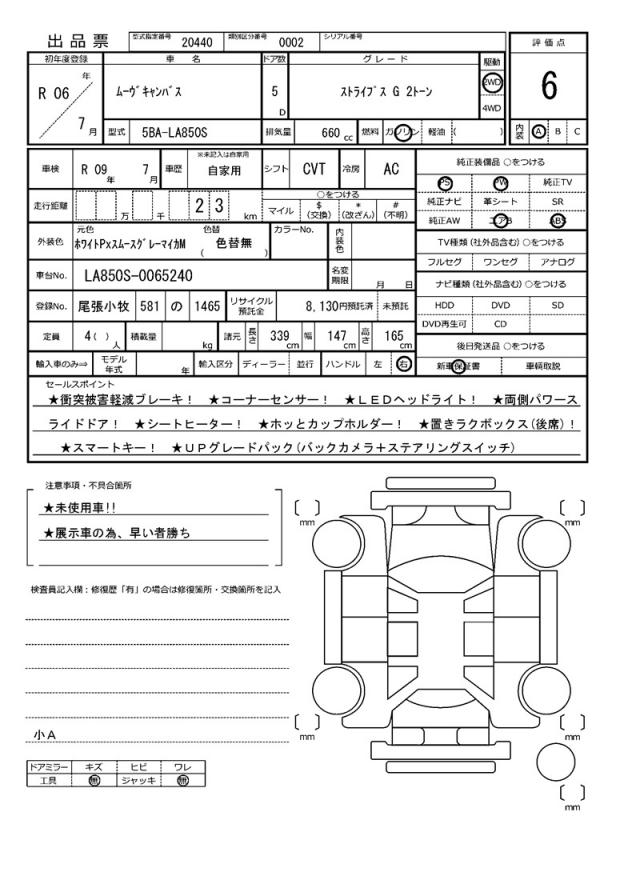 出品票 型式指定番号 20440 類別区分番号 0002 シリアル番号
評価点
6
内装 A B C
初年度登録 車名 ドア数 グレード 駆動
R 06 年 7 月 ムーヴキャンバス 5 D ストライプス G 2トーン 2WD 4WD
型式 5BA-LA850S 排気量 660 cc 燃料 ガソリン 軽油 ( )
車検 R 09 年 7 月 車歴 ※未記入は自家用 自家用 シフト CVT 冷房 AC
走行距離 万 千 2 3 km ○をつける
マイル $(交換) *(改ざん) #(不明)
外装色 元色 ホワイトPxスムースグレーマイカM 色替 ( 色替無 ) カラーNo. 内装色
車台No. LA850S-0065240 名変期限 月 日
登録No. 尾張小牧 581 の 1465 リサイクル預託金 8,130円預託済 未預託
定員 4( ) 人 積載量 kg 諸元 長さ 339 cm 幅 147 cm 高さ 165 cm
輸入車のみ⇒ モデル年式 年 輸入区分 ディーラー 並行 ハンドル 左 右
純正装備品 ○をつける
PS PW 純正TV
純正ナビ 革シート SR
純正AW エアB ABS
TV種類(社外品含む)○をつける
フルセグ ワンセグ アナログ
ナビ種類(社外品含む)○をつける
HDD DVD SD
DVD再生可 CD
後日発送品 ○をつける
新車保証書 車輌取説
セールスポイント
★衝突被害軽減ブレーキ! ★コーナーセンサー! ★LEDヘッドライト! ★両側パワース
ライドドア! ★シートヒーター! ★ホッとカップホルダー! ★置きラクボックス(後席)!
★スマートキー! ★UPグレードパック(バックカメラ+ステアリングスイッチ)
注意事項・不具合箇所
★未使用車!!
★展示車の為、早い者勝ち
検査員記入欄:修復歴「有」の場合は修復箇所・交換箇所を記入
小A
ドアミラー キズ ヒビ ワレ
工具 無 ジャッキ 無
〔 〕mm
〔 〕mm
〔 〕mm
〔 〕mm
〔 〕mm